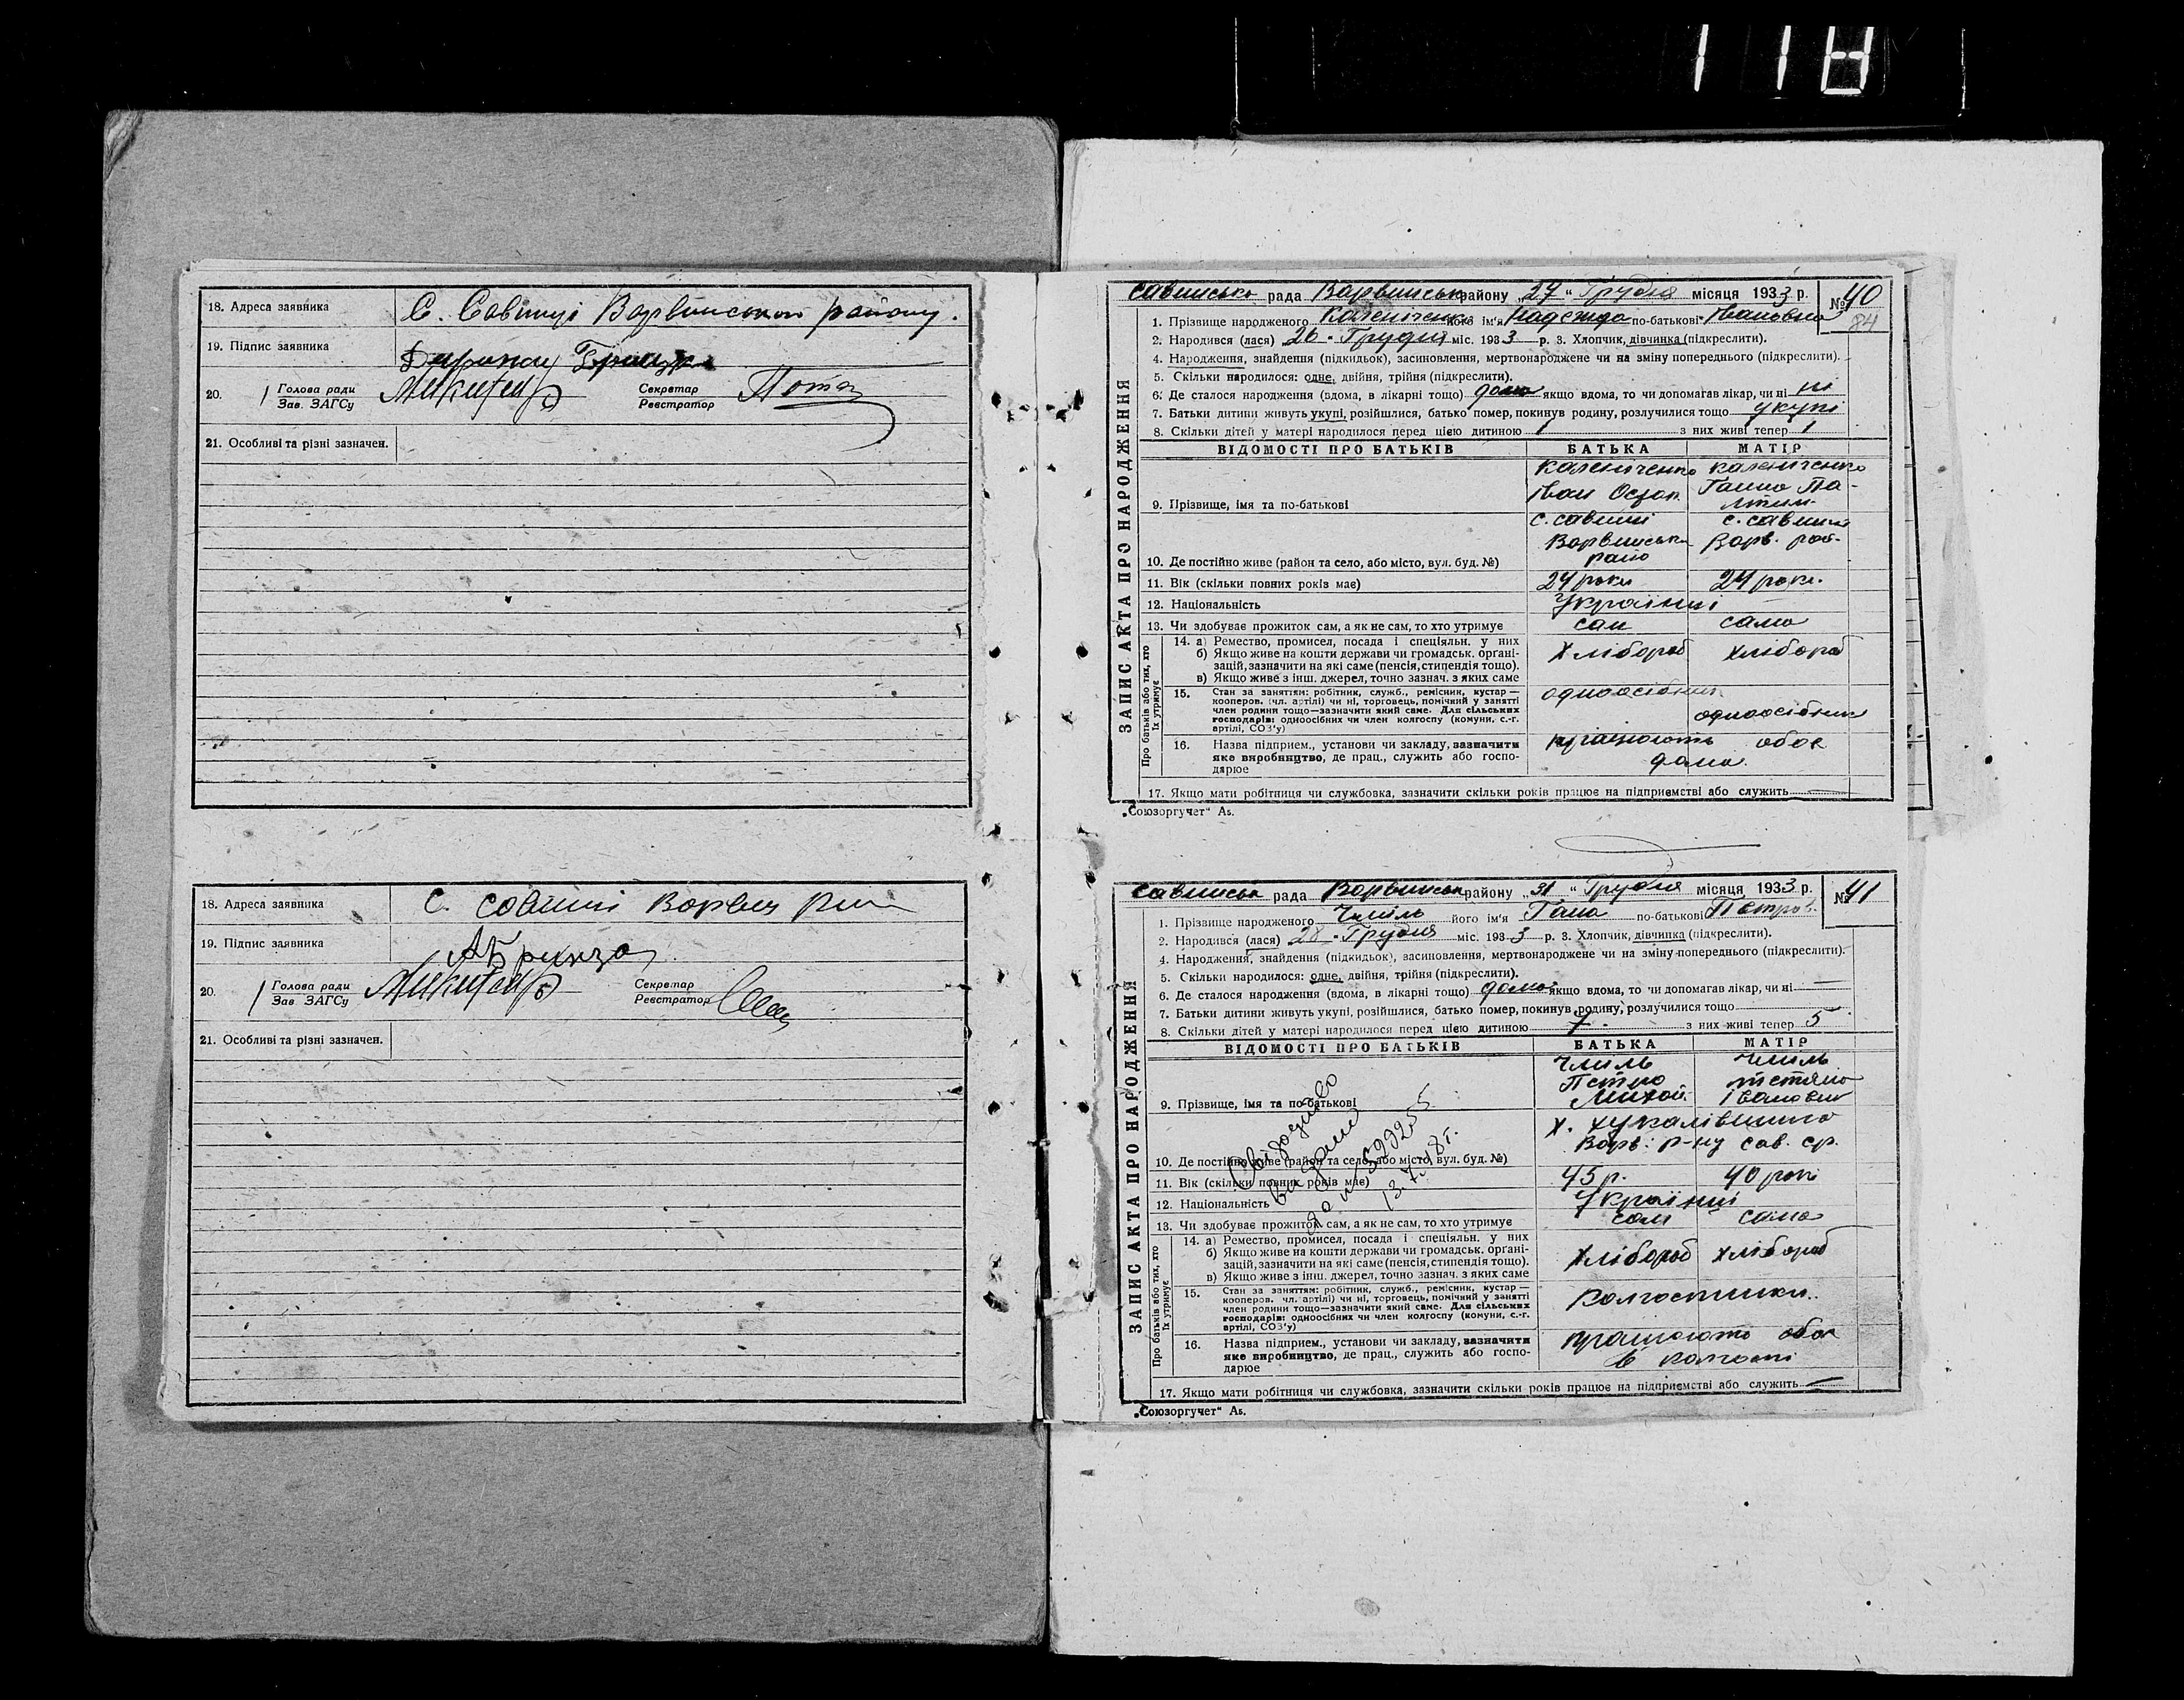 118
18. Адреса заявника С. Савинці Варвинського району.
19. Підпис заявника
20. Голова ради Секретар
Зав. ЗАГСу Реєстратор
21. Особливі та різні зазначен.
18. Адреса заявника С. Савинці Варвин
19. Підпис заявника АБринза
20. Голова ради Секретар
Зав. ЗАГСу Реєстратор
21. Особливі та різні зазначен.
Савинська рада Варвинськ району „27“ Грудня місяця 1933 р. № 40
84
1. Прізвище народженого Каленіченко його ім'я Надежда по-батькові Івановна
2. Народився (лася) 26 Грудня міс. 1933 р. 3. Хлопчик, дівчинка (підкреслити).
4. Народження, знайдення (підкидьок), засиновлення, мертвонароджене чи на зміну попереднього (підкреслити).
5. Скільки народилося: одне, двійня, трійня (підкреслити).
6. Де сталося народження (вдома, в лікарні тощо) дома якщо вдома, то чи допомагав лікар, чи ні ні
7. Батьки дитини живуть укупі, розійшлися, батько помер, покинув родину, розлучилися тощо укупі
8. Скільки дітей у матері народилося перед цією дитиною 1 з них живі тепер 1
ЗАПИС АКТА ПРО НАРОДЖЕННЯ
ВІДОМОСТІ ПРО БАТЬКІВ БАТЬКА МАТІР
Каленіченко Каленіченко
Іван Ганна
9. Прізвище, імя та по-батькові
с. Савинці с. Савинці
Варвинськ Варв.
10. Де постійно живе (район та село, або місто, вул. буд. №)
11. Вік (скільки повних років має) 24 роки 24 роки
12. Національність Українці
13. Чи здобуває прожиток сам, а як не сам, то хто утримує сам сама
Про батьків або тих, хто їх утримує
14. а) Ремество, промисел, посада і спеціяльн. у них Хлібороб хлібороб
б) Якщо живе на кошти держави чи громадськ. органі-
зацій, зазначити на які саме (пенсія, стипендія тощо).
в) Якщо живе з інш. джерел, точно зазнач. з яких саме
15. Стан за заняттям: робітник, служб., ремісник, кустар — одноосібник
кооперов. (чл. артілі) чи ні, торговець, помічний у занятті
член родини тощо—зазначити який саме. Для сільських одноосібник
господарів: одноосібних чи член колгоспу (комуни, с.-г.
артілі, СОЗ'у)
16. Назва підприєм., установи чи закладу, зазначити працюють обоє
яке виробництво, де прац., служить або госпо- дома.
дарює
17. Якщо мати робітниця чи службовка, зазначити скільки років працює на підприємстві або служить
„Союзоргучет“ Аз.
Савинська рада Варвинськ району „31“ Грудня місяця 1933 р. № 41
1. Прізвище народженого Чміль його ім'я Гана по-батькові Петров.
2. Народився (лася) 28 Грудня міс. 1933 р. 3. Хлопчик, дівчинка (підкреслити).
4. Народження, знайдення (підкидьок), засиновлення, мертвонароджене чи на зміну попереднього (підкреслити).
5. Скільки народилося: одне, двійня, трійня (підкреслити).
6. Де сталося народження (вдома, в лікарні тощо) дома якщо вдома, то чи допомагав лікар, чи ні
7. Батьки дитини живуть укупі, розійшлися, батько помер, покинув родину, розлучилися тощо
8. Скільки дітей у матері народилося перед цією дитиною 7. з них живі тепер 5
ЗАПИС АКТА ПРО НАРОДЖЕННЯ
ВІДОМОСТІ ПРО БАТЬКІВ БАТЬКА МАТІР
Чміль Чміль
Петро
Михай. Івановна
9. Прізвище, імя та по-батькові
Варв. р-ну Сав. ср.
10. Де постійно живе (район та село, або місто, вул. буд. №)
11. Вік (скільки повних років має) 45 р. 40 рокі
12. Національність Українці
13. Чи здобуває прожиток сам, а як не сам, то хто утримує сам сама
Свідоцтво
видано
13.7.48 г.
Про батьків або тих, хто їх утримує
14. а) Ремество, промисел, посада і спеціяльн. у них Хлібороб хлібороб
б) Якщо живе на кошти держави чи громадськ. органі-
зацій, зазначити на які саме (пенсія, стипендія тощо).
в) Якщо живе з інш. джерел, точно зазнач. з яких саме
15. Стан за заняттям: робітник, служб., ремісник, кустар — колгоспники.
кооперов. чл. артілі) чи ні, торговець, помічний у занятті
член родини тощо—зазначити який саме. Для сільських
господарів: одноосібних чи член колгоспу (комуни, с.-г.
артілі, СОЗ'у)
16. Назва підприєм., установи чи закладу, зазначити працюють обоє
яке виробництво, де прац., служить або госпо- в колгоспі
дарює
17. Якщо мати робітниця чи службовка, зазначити скільки років працює на підприємстві або служить
„Союзоргучет“ Аз.